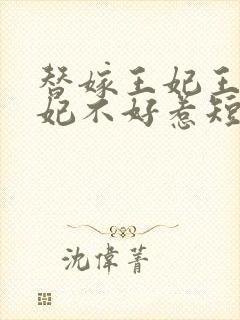 替嫁王妃王
妃不好惹短
沈偉菁